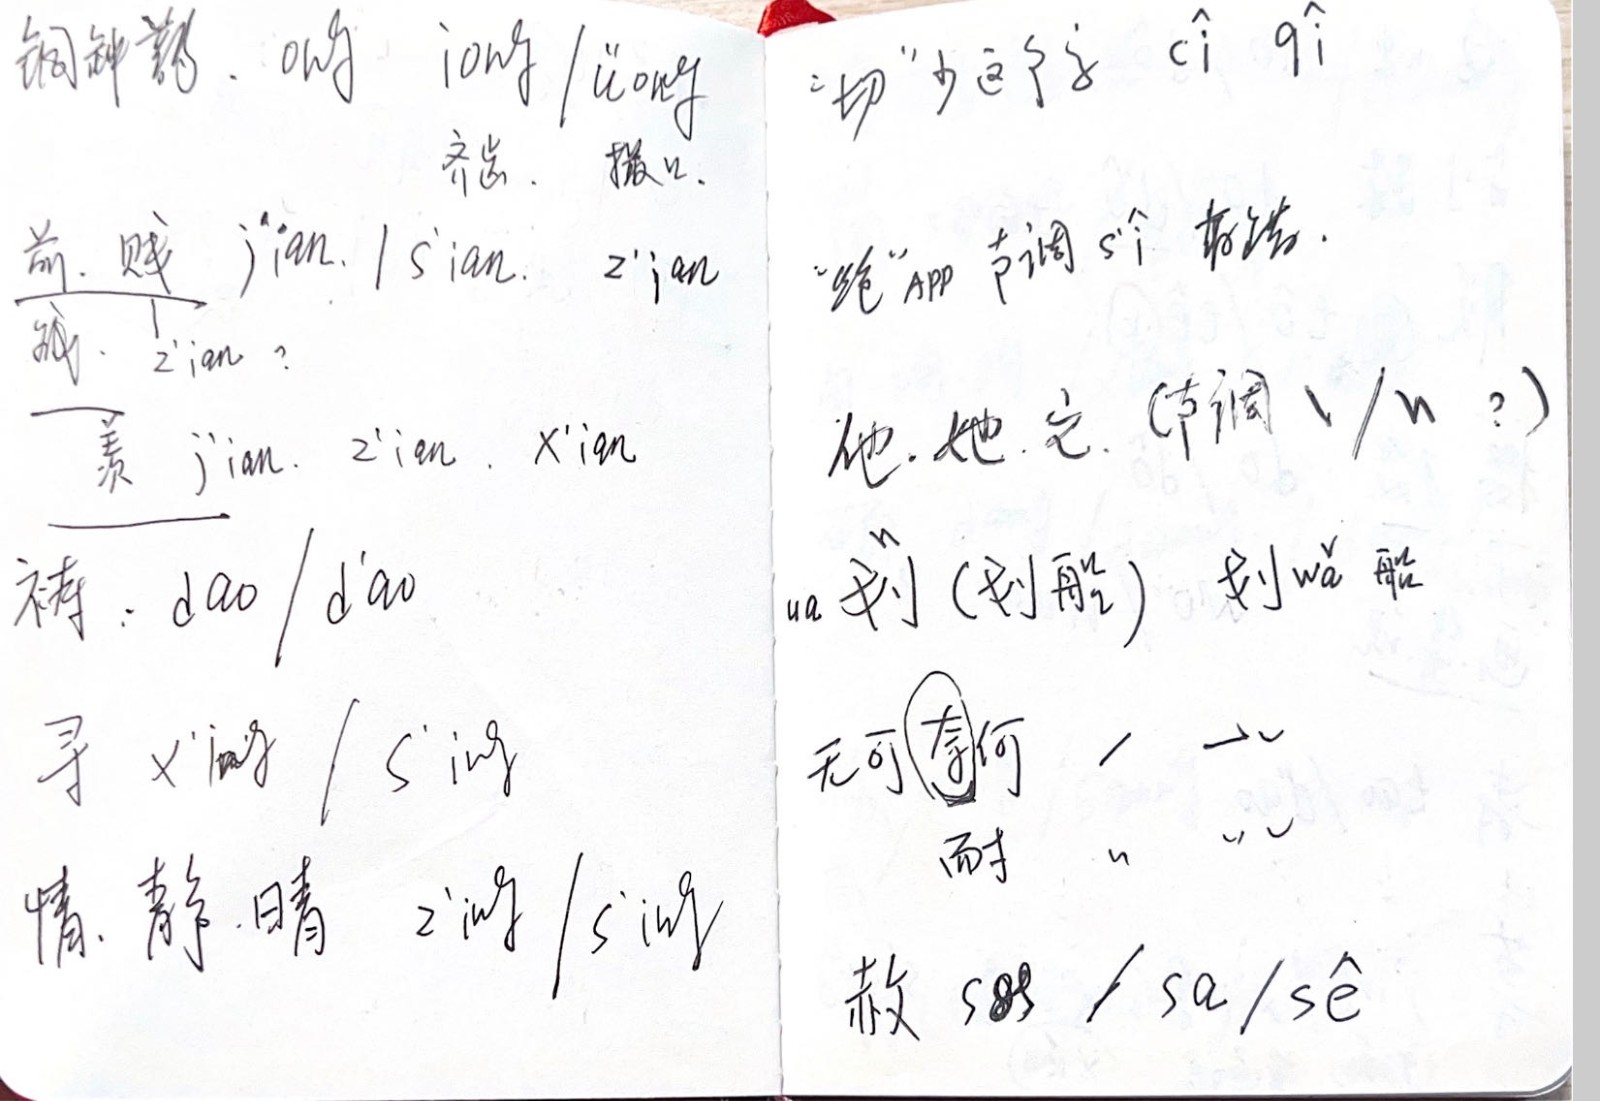 铜钟鹅. ong iong/üong
齐齿. 撮口.
前. 贱 j'ian. / s'ian. z'ian
贼. z'ian ?
羡 j'ian. z'ian. x'ian
祷: dao/d'ao
寻 x'ing / s'ing
情. 静. 晴 z'ing/s'ing
“切”少这个字 cî qî
“绝”APP 节调 s'î 弄错.
他. 她. 它. (节调 \ / и ?)
ua 划 (划船) 划 wǎ 船
无可奈何
耐
赦 / sa/sê